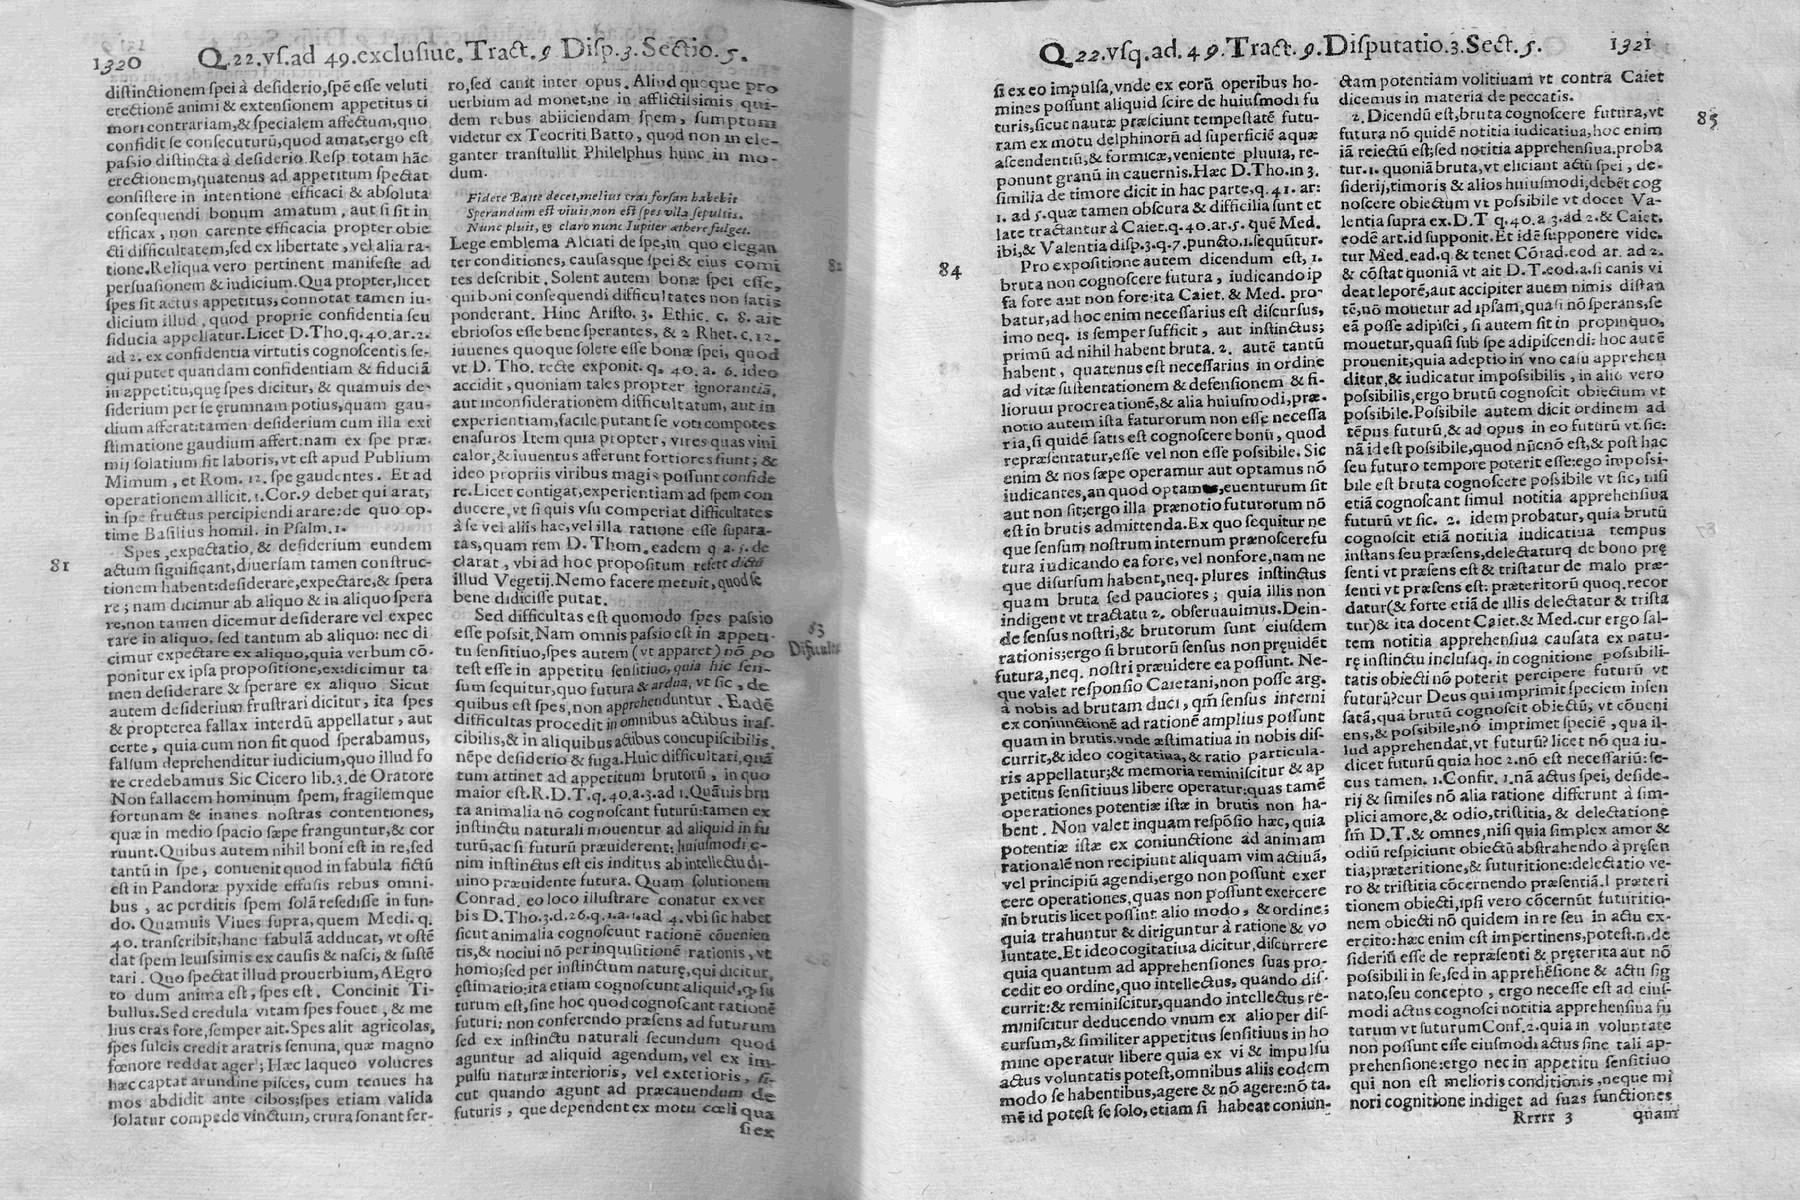 1320
Q.22.vſ.ad 49.excluſiue.Tract.9 Diſp.3.Sectio.5.
diſtinctionem ſpei à deſiderio,ſpẽ eſſe veluti
erectionẽ animi & extenſionem appetitus ti
mori contrariam,& ſpecialem affectum,quo
confidit ſe conſecuturũ,quod amat,ergo eſt
paſsio diſtincta à deſiderio Reſp totam hãc
erectionem,quatenus ad appetitum ſpectat
conſiſtere in intentione efficaci & abſoluta
conſequendi bonum amatum, aut ſi ſit in
efficax, non carente efficacia propter obie
cti difficultatem,ſed ex libertate, vel alia ra-
tione.Reliqua vero pertinent manifeſte ad
perſuaſionem & iudicium.Qua propter,licet
ſpes ſit actus appetitus, connotat tamen iu-
dicium illud, quod proprie confidentia ſeu
fiducia appellatur.Licet D.Tho.q.40.ar.2.
ad 2. ex confidentia virtutis cognoſcentis ſe-
qui putet quandam confidentiam & fiduciã
in appetitu,quę ſpes dicitur, & quamuis de-
ſiderium per ſe ęrumnam potius,quam gau-
dium afferat:tamen deſiderium cum illa exi
ſtimatione gaudium affert:nam ex ſpe præ-
mij ſolatium fit laboris,vt eſt apud Publium
Mimum, et Rom. 12. ſpe gaudentes. Et ad
operationem allicit.1.Cor.9 debet qui arat,
in ſpe fructus percipiendi arare:de quo op-
time Baſilius homil. in Pſalm.1.
81
Spes,expectatio,& deſiderium eundem
actum ſignificant,diuerſam tamen conſtruc-
tionem habent:deſiderare,expectare,& ſpera
re; nam dicimur ab aliquo & in aliquo ſpera
re,non tamen dicemur deſiderare vel expec
tare in aliquo, ſed tantum ab aliquo: nec di
cimur expectare ex aliquo,quia verbum cõ-
ponitur ex ipſa propoſitione,ex:dicimur ta
men deſiderare & ſperare ex aliquo Sicut
autem deſiderium fruſtrari dicitur, ita ſpes
& propterea fallax interdũ appellatur, aut
certe, quia cum non fit quod ſperabamus,
falſum deprehenditur iudicium,quo illud fo
re credebamus Sic Cicero lib.3.de Oratore
Non fallacem hominum ſpem, fragilemque
fortunam & inanes noſtras contentiones,
quæ in medio ſpacio ſæpe franguntur,& cor
ruunt.Quibus autem nihil boni eſt in re,ſed
tantũ in ſpe, conuenit quod in fabula fictũ
eſt in Pandoræ pyxide effuſis rebus omni-
bus, ac perditis ſpem ſolã reſediſſe in fun-
do. Quamuis Viues ſupra,quem Medi. q.
40. tranſcribit,hanc fabulã adducat, vt oſtẽ
dat ſpem leuiſsimis ex cauſis & naſci, & ſuſtẽ
tari. Quo ſpectat illud prouerbium, AEgro
to dum anima eſt, ſpes eſt. Concinit Ti-
bullus.Sed credula vitam ſpes fouet, & me
lius cras fore,ſemper ait.Spes alit agricolas,
ſpes ſulcis credit aratris ſemina, quæ magno
fœnore reddat ager; Hæc laqueo volucres
hæc captat arundine piſces, cum tenues ha
mos abdidit ante cibos;ſpes etiam valida
ſolatur compede vinctum, crura ſonant fer-
ro,ſed canit inter opus. Aliud quoque pro
uerbium ad monet,ne in afflictiſsimis qui-
dem rebus abiiciendam ſpem, ſumptum
videtur ex Teocriti Batto, quod non in ele-
ganter tranſtullit Philelphus hunc in mo-
dum.
Fidere Batte decet,melius cras forſan habebit
Sperandum eſt viuis,non eſt ſpes vlla ſepultis.
Nunc pluit, & claro nunc Iupiter æthere fulget.
Lege emblema Alciati de ſpe,in quo elegan
ter conditiones, cauſasque ſpei & eius comi
82
tes deſcribit. Solent autem bonæ ſpei eſſe,
qui boni conſequendi difficultates non ſatis
ponderant. Hinc Ariſto. 3. Ethic. c. 8. ait
ebrioſos eſſe bene ſperantes, & 2 Rhet. c.12.
iuuenes quoque ſolere eſſe bonæ ſpei, quod
vt D. Tho. recte exponit. q. 40. a. 6. ideo
accidit, quoniam tales propter ignorantiã,
aut inconſiderationem difficultatum, aut in
experientiam,facile putant ſe voti compotes
enaſuros Item quia propter, vires quas vini
calor,& iuuentus afferunt fortiores fiunt; &
ideo propriis viribus magis poſſunt confide
re.Licet contigat,experientiam ad ſpem con
ducere,vt ſi quis vſu comperiat difficultates
à ſe vel aliis hac,vel illa ratione eſſe ſupara-
tas,quam rem D. Thom. eadem q a.5.de
clarat, vbi ad hoc propoſitum refert dictũ
illud Vegetij.Nemo facere metuit,quod ſe
bene didiciſſe putat.
83
Difficultas
Sed difficultas eſt quomodo ſpes paſsio
eſſe poſsit.Nam omnis paſsio eſt in appeti-
tu ſenſitiuo,ſpes autem (vt apparet) nõ po
teſt eſſe in appetitu ſenſitiuo,quia hic ſen-
ſum ſequitur,quo futura & ardua, vt ſic, de
quibus eſt ſpes,non apprehenduntur. Eadẽ
difficultas procedit in omnibus actibus iraſ-
cibilis,& in aliquibus actibus concupiſcibilis,
nẽpe deſiderio & fuga.Huic difficultati,quã
tum attinet ad appetitum brutorũ, in quo
maior eſt.R.D.T.q.40.a.3.ad 1.Quãuis bru
ta animalia nõ cognoſcant futurũ:tamen ex
inſtinctu naturali mouentur ad aliquid in fu
turũ,ac ſi futurũ præuiderent: huiuſmodi e-
nim inſtinctus eſt eis inditus ab intellectu di-
uino præuidente futura. Quam ſolutionem
Conrad. eo loco illuſtrare conatur ex ver
bis D.Tho.3.d.26.q.1.a.1.ad 4. vbi ſic habet
ſicut animalia cognoſcunt rationẽ cõuenien
tis,& nociui nõ per inquiſitionẽ rationis, vt
homo;ſed per inſtinctum naturę,qui dicitur,
ęſtimatio:ita etiam cognoſcunt aliquid, φ fu
turum eſt,ſine hoc quod cognoſcant rationẽ
futuri: non conferendo præſens ad futurum
ſed ex inſtinctu naturali ſecundum quod
aguntur ad aliquid agendum, vel ex im-
pulſu naturæ interioris, vel exterioris, ſi-
cut quando agunt ad præcauendum de
futuris, que dependent ex motu cœli qua
ſi ex
Q.22.vſq.ad.49.Tract.9.Diſputatio.3.Sect.5.
1321
ſi ex eo impulſa,vnde ex eorũ operibus ho-
mines poſſunt aliquid ſcire de huiuſmodi fu
turis,ſicut nautæ præſciunt tempeſtatẽ futu-
ram ex motu delphinorũ ad ſuperficiẽ aquæ
aſcendentiũ,& formicæ,veniente pluuia, re-
ponunt granũ in cauernis.Hæc D.Tho.in 3.
ſimilia de timore dicit in hac parte,q.41.ar:
1. ad 5.quæ tamen obſcura & difficilia ſunt et
late tractantur à Caiet.q.40.ar.5. quẽ Med.
ibi,& Valentia diſp.3.q.7.puncto.1.ſequũtur.
84
Pro expoſitione autem dicendum eſt, 1.
bruta non cognoſcere futura, iudicando ip
ſa fore aut non fore:ita Caiet. & Med. pro-
batur,ad hoc enim neceſſarius eſt diſcurſus,
imo neq. is ſemper ſufficit, aut inſtinctus;
primũ ad nihil habent bruta. 2. autẽ tantũ
habent, quatenus eſt neceſſarius in ordine
ad vitæ ſuſtentationem & defenſionem & fi-
liorum procreationẽ,& alia huiuſmodi,præ-
notio autem iſta faturorum non eſſe neceſſa
ria,ſi quidẽ ſatis eſt cognoſcere bonũ, quod
repræſentatur,eſſe vel non eſſe poſsibile. Sic
enim & nos ſæpe operamur aut optamus nõ
iudicantes,an quod optamus,euenturum ſit
aut non ſit;ergo illa prænotio futurorum nõ
eſt in brutis admittenda.Ex quo ſequitur ne
que ſenſum noſtrum internum prænoſcere fu
tura iudicando ea fore, vel non fore,nam ne
que diſurſum habent,neq. plures inſtinctus
quam bruta ſed pauciores; quia illis non
indigent vt tractatu 2. obſeruauimus.Dein-
de ſenſus noſtri,& brutorum ſunt eiuſdem
rationis:ergo ſi brutorũ ſenſus non pręuidẽt
futura,neq. noſtri præuidere ea poſſunt. Ne-
que valet reſponſio Caietani,non poſſe arg.
à nobis ad brutam duci, qm̃ ſenſus interni
ex coniunctionẽ ad rationẽ amplius poſſunt
quam in brutis.vnde æſtimatiua in nobis diſ-
currit,& ideo cogitatiua,& ratio particula-
ris appellatur;& memoria reminiſcitur & ap
petitus ſenſitiuus libere operatur:quas tamẽ
operationes potentiæ iſtæ in brutis non ha-
bent. Non valet inquam reſpõſio hæc, quia
potentiæ iſtæ ex coniunctione ad animam
rationalẽ non recipiunt aliquam vim actiuã,
vel principiũ agendi,ergo non poſſunt exer
cere operationes,quas non poſſunt exercere
in brutis licet poſſint alio modo, & ordine;
quia trahuntur & diriguntur à ratione & vo
luntate.Et ideo cogitatiua dicitur,diſcurrere
quia quantum ad apprehenſiones ſuas pro-
cedit eo ordine,quo intellectus, quando diſ-
currit:& reminiſcitur,quando intellectus re-
miniſcitur deducendo vnum ex alio per diſ-
curſum,& ſimiliter appetitus ſenſitiuus in ho
mine operatur libere quia ex vi & impulſu
actus voluntatis poteſt,omnibus aliis eodem
modo ſe habentibus,agere & nõ agere:nõ ta-
mẽ id poteſt ſe ſolo,etiam ſi habeat coniun-
ctam potentiam volitiuam vt contra Caiet
dicemus in materia de peccatis.
85
2.Dicendũ eſt,bruta cognoſcere futura,vt
futura nõ quidẽ notitia iudicatiua,hoc enim
iã reiectũ eſt;ſed notitia apprehenſiua.proba
tur.1. quoniã bruta,vt eliciant actũ ſpei, de-
ſiderij,timoris & alios huiuſmodi,debẽt cog
noſcere obiectum vt poſsibile vt docet Va-
lentia ſupra ex.D.T q.40.a 3.ad 2.& Caiet.
eodẽ art.id ſupponit.Et idẽ ſupponere vide-
tur Med.ead.q.& tenet Cõrad.eod ar. ad 2.
& cõſtat quoniã vt ait D.T.eod.a.ſi canis vi
deat leporẽ,aut accipiter auem nimis diſtan
tẽ,nõ mouetur ad ipſam,quaſi nõ ſperans,ſe
eã poſſe adipiſci, ſi autem ſit in propinquo,
mouetur,quaſi ſub ſpe adipiſcendi: hoc autẽ
prouenit;quia adeptio in vno caſu apprehen
ditur,& iudicatur impoſsibilis, in alio vero
poſsibilis,ergo brutũ cognoſcit obiectum vt
poſsibile.Poſsibile autem dicit ordinem ad
tẽpus futurũ,& ad opus in eo futurũ vt.ſic:
nã id eſt poſsibile,quod nũcnõ eſt,& poſt hac
ſeu futuro tempore poterit eſſe:ego impoſsi-
bile eſt bruta cognoſcere poſsibile vt ſic, niſi
etiã cognoſcant ſimul notitia apprehenſiua
futurũ vt ſic. 2. idem probatur, quia brutũ
cognoſcit etiã notitia iudicatiua tempus
inſtans ſeu præſens,delectaturq de bono prę
ſenti vt præſens eſt & triſtatur de malo præ-
ſenti vt præſens eſt: præteritorũ quoq.recor
datur(& forte etiã de illis delectatur & triſta
tur)& ita docent Caiet.& Med.cur ergo ſal-
tem notitia apprehenſiua cauſata ex natu-
rę inſtinctu incluſaq. in cognitione poſsibili-
tatis obiecti nõ poterit percipere futurũ vt
futurũ?cur Deus qui imprimit ſpeciem inſen
ſatã,qua brutũ cognoſcit obiectũ, vt cõueni
ens,& poſsibile,nõ imprimet ſpeciẽ, qua il-
lud apprehendat,vt futurũ? licet nõ qua iu-
dicet futurũ quia hoc 2.nõ eſt neceſſariũ:ſe-
cus tamen. 1.Confir. 1.nã actus ſpei, deſide-
rij & ſimiles nõ alia ratione differunt à ſim-
plici amore,& odio,triſtitia, & delectatione
ſm̃ D.T.& omnes,niſi quia ſimplex amor &
odiũ reſpiciunt obiectũ abſtrahendo à pręſen
tia;præteritione,& futuritione:delectatio ve-
ro & triſtitia cõcernendo præſentiã.I præteri
tionem obiecti,ipſi vero cõcernũt futuritio-
nem obiecti nõ quidem in re ſeu in actu ex-
ercito:hæc enim eſt impertinens,poteſt.n.de
ſideriũ eſſe de repræſenti & pręterita aut nõ
poſsibili in ſe,ſed in apprehẽſione & actu ſig
nato,ſeu concepto, ergo neceſſe eſt ad eiuſ-
modi actus cognoſci notitia apprehenſiua fu
turum vt futurum Conf.2.quia in voluntate
non poſſunt eſſe eiuſmodi actus ſine tali ap-
prehenſione:ergo nec in appetitu ſenſitiuo
qui non eſt melioris conditionis,neque mi
nori cognitione indiget ad ſuas functiones
Rrrrr 3 quam